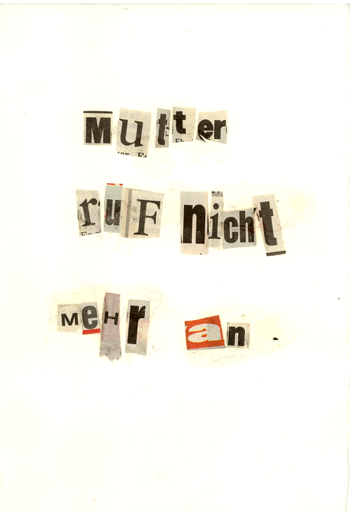 Mutter
ruF nicht
MeHr an